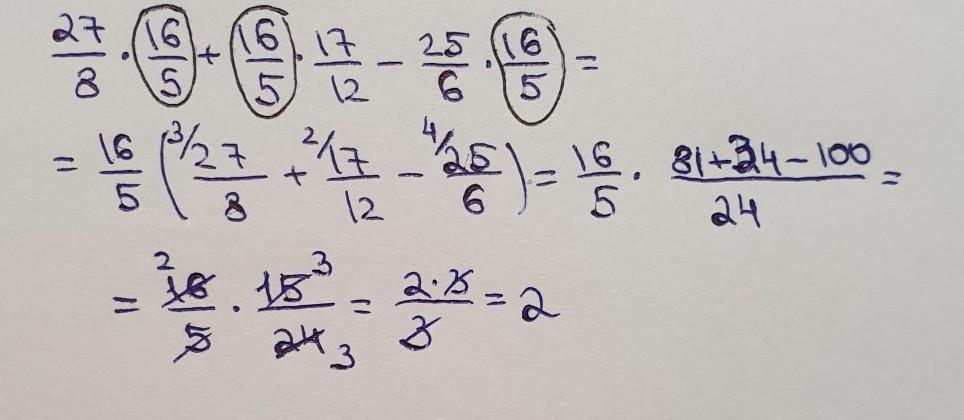 27/8 · 16/5 + 16/5 · 17/12 − 25/6 · 16/5 =
= 16/5 (³⁄27/8 + ²⁄17/12 − ⁴⁄25/6) = 16/5 · (81+34−100)/24 =
= ²16/5 · 15³/24₃ = 2·3/3 = 2